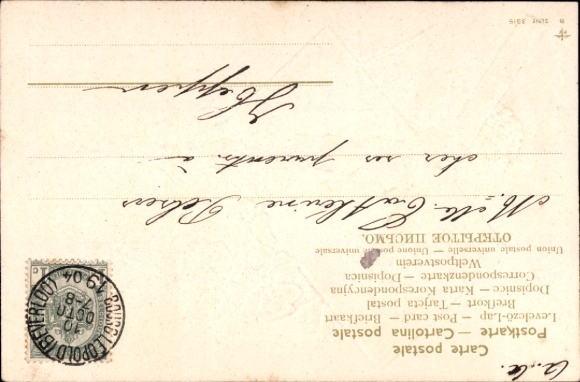 a. b.
Carte postale
Postkarte — Cartolina postale
Levelező-Lap — Post card — Briefkaart
Brefkort — Tarjeta postal
Dopisnice — Karta Korespondencyjna
Correspondenzkarte — Dopisnica
Weltpostverein
Union postale universelle — Unione postale universale
ОТКРЫТОЕ ПИСЬМО.
Melle
chez ses parents à
Heppen
BOURG-LEOPOLD (BEVERLOO)
10
OCTO
7-8
19 04
1 C